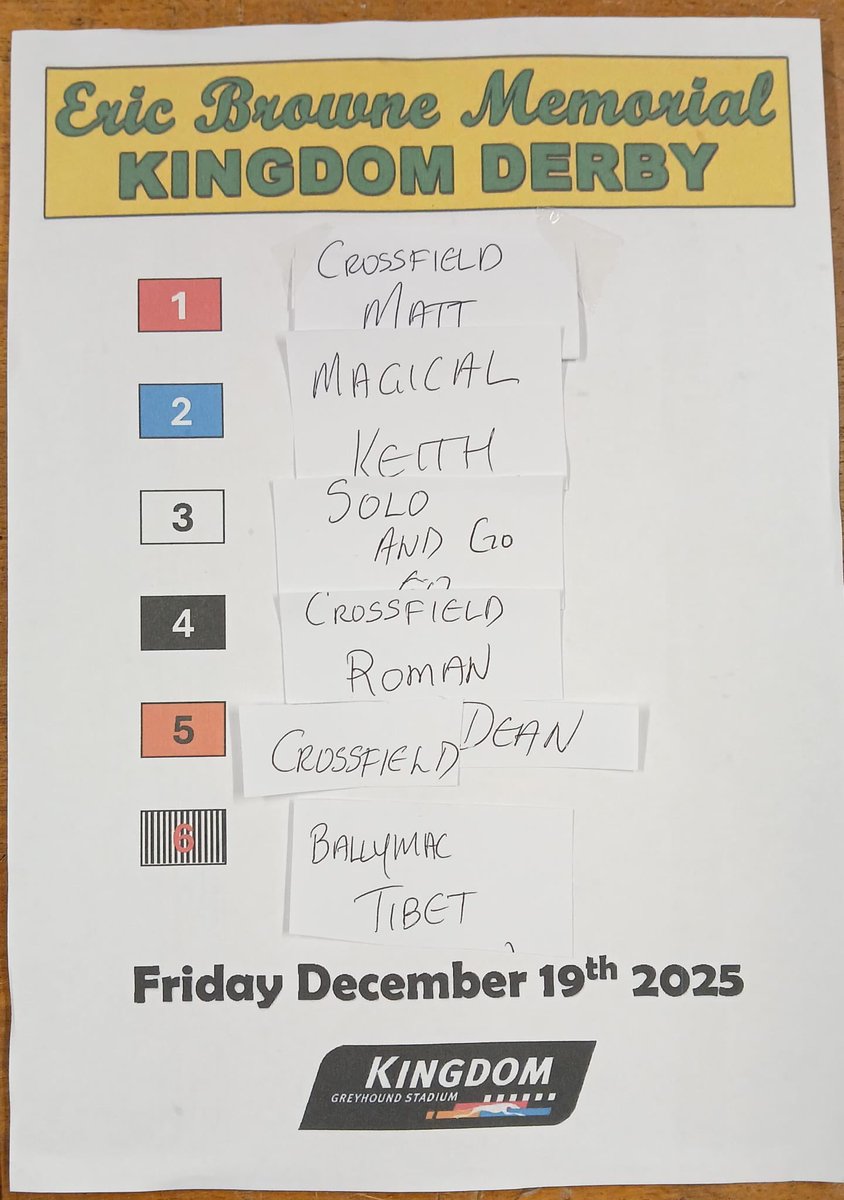 Eric Browne Memorial
KINGDOM DERBY
1
CROSSFIELD
MATT
2
MAGICAL
KEITH
3
SOLO
AND GO
4
CROSSFIELD
ROMAN
5
CROSSFIELD DEAN
6
BALLYMAC
TIBET
Friday December 19th 2025
KINGDOM
GREYHOUND STADIUM